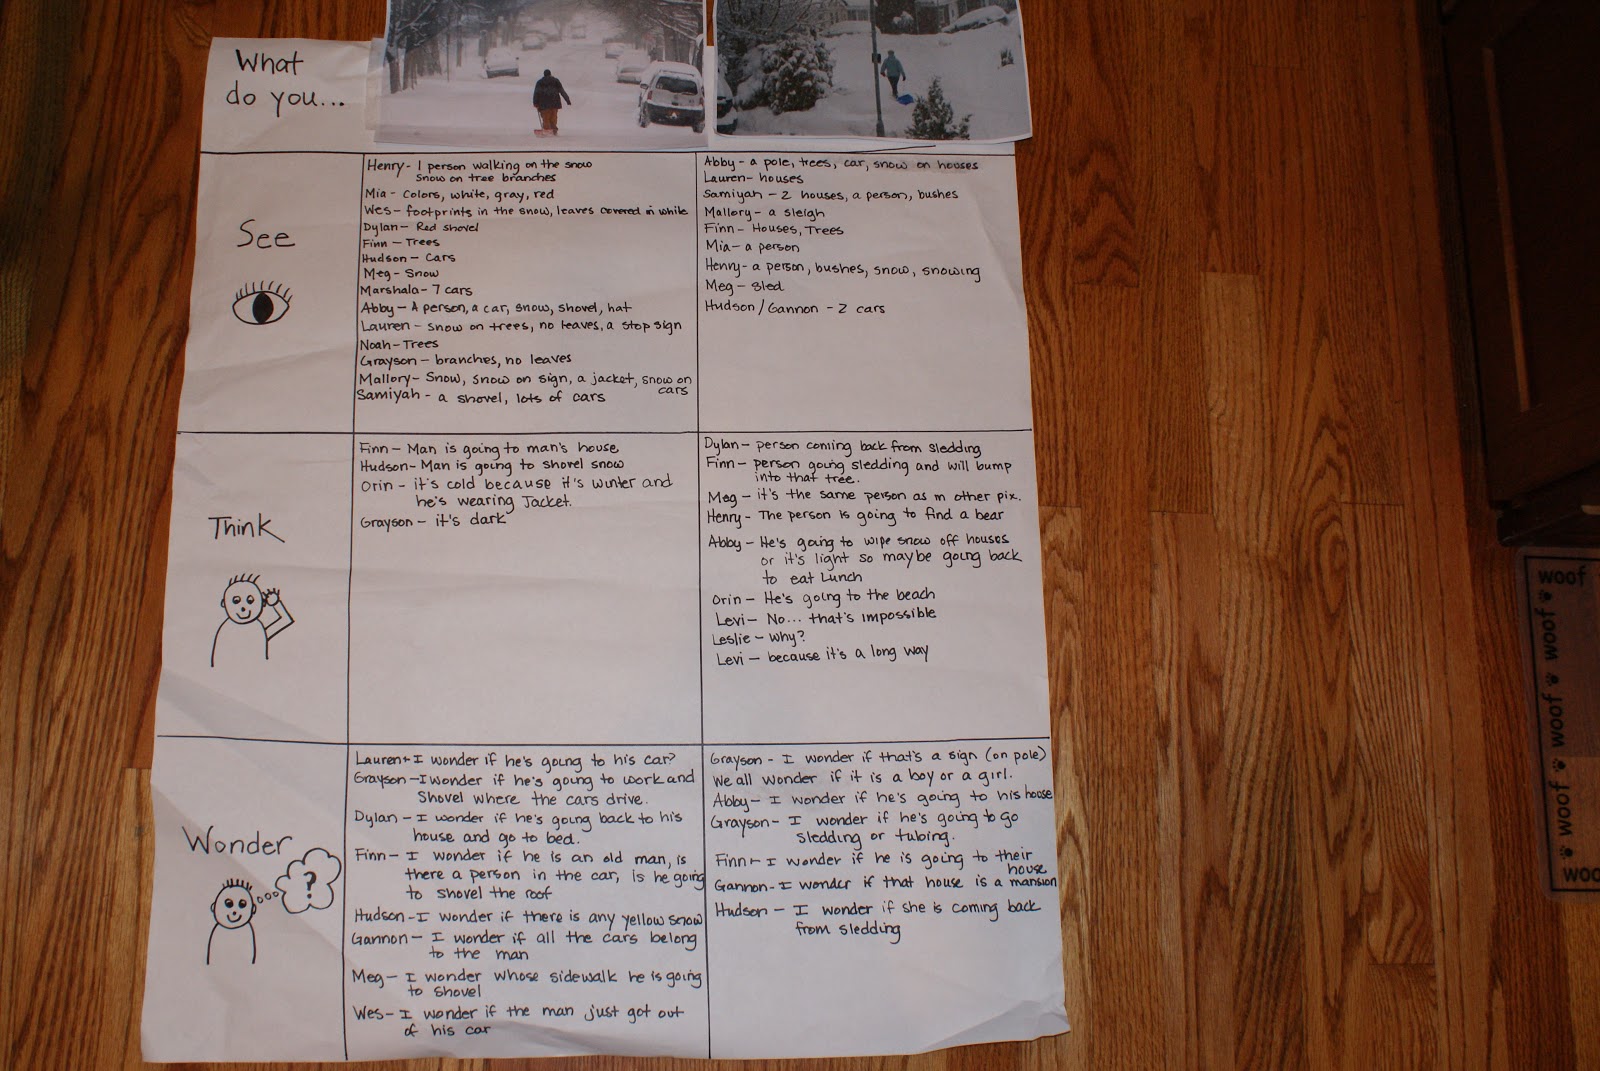 What
do you...
See
Henry- 1 person walking on the snow
Snow on tree branches
Mia - colors, white, gray, red
Wes- footprints in the snow, leaves covered in white
Dylan- Red shovel
Finn - Trees
Hudson- Cars
Meg- Snow
Marshala- 7 cars
Abby- A person, a car, snow, shovel, hat
Lauren- snow on trees, no leaves, a stop sign
Noah-Trees
Grayson- branches, no leaves
Mallory- Snow, snow on sign, a jacket, snow on
cars
Samiyah - a shovel, lots of cars
Abby- a pole, trees, car, snow on houses
Lauren- houses
Samiyah - 2 houses, a person, bushes
Mallory- a sleigh
Finn- Houses, Trees
Mia- a person
Henry- a person, bushes, snow, snowing
Meg- sled
Hudson/Gannon - 2 cars
Think
Finn- Man is going to man's house
Hudson- Man is going to shovel snow
Orin - it's cold because it's winter and
he's wearing Jacket.
Grayson- it's dark
Dylan- person coming back from sledding
Finn- person going sledding and will bump
into that tree.
Meg- it's the same person as in other pix.
Henry- The person is going to find a bear
Abby- He's going to wipe snow off houses
or it's light so maybe going back
to eat Lunch
Orin- He's going to the beach
Levi- No... that's impossible
Leslie- Why?
Levi- because it's a long way
Wonder
?
Lauren- I wonder if he's going to his car?
Grayson- I wonder if he's going to work and
Shovel where the cars drive.
Dylan- I wonder if he's going back to his
house and go to bed.
Finn- I wonder if he is an old man, is
there a person in the car, is he going
to shovel the roof
Hudson- I wonder if there is any yellow snow
Gannon- I wonder if all the cars belong
to the man
Meg- I wonder whose sidewalk he is going
to shovel
Wes- I wonder if the man just got out
of his car
Grayson - I wonder if that's a sign (on pole)
We all wonder if it is a boy or a girl.
Abby- I wonder if he's going to his house
Grayson- I wonder if he's going to go
sledding or tubing.
Finn- I wonder if he is going to their
house
Gannon- I wonder if that house is a mansion
Hudson- I wonder if she is coming back
from sledding
woof
woof
woof
woof
woof